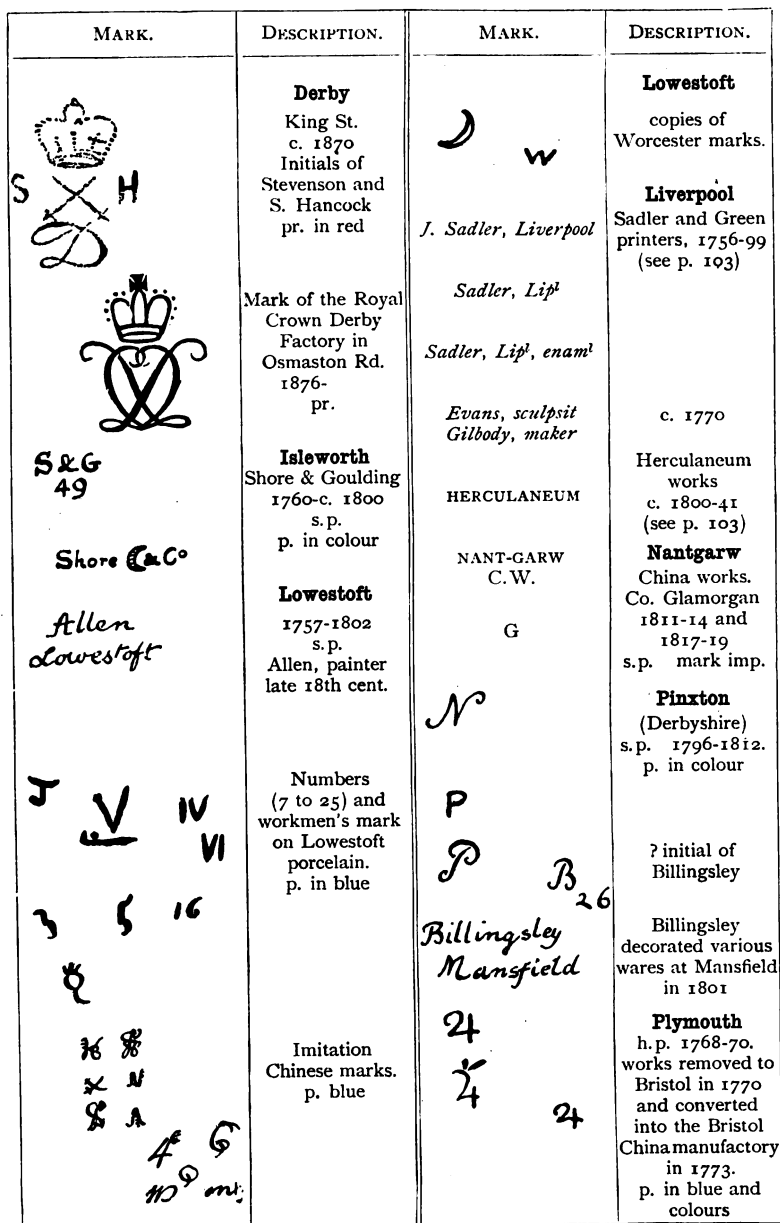 MARK.
DESCRIPTION.
Derby
King St.
c. 1870
Initials of
Stevenson and
S. Hancock
pr. in red
S H
D
Mark of the Royal
Crown Derby
Factory in
Osmaston Rd.
1876-
pr.
S & G
49
Isleworth
Shore & Goulding
1760-c. 1800
s.p.
p. in colour
Shore & Co
Allen
Lowestoft
Lowestoft
1757-1802
s.p.
Allen, painter
late 18th cent.
J V IV
VI
3 5 16
Numbers
(7 to 25) and
workmen's mark
on Lowestoft
porcelain.
p. in blue
Imitation
Chinese marks.
p. blue
MARK.
DESCRIPTION.
W
Lowestoft
copies of
Worcester marks.
J. Sadler, Liverpool
Sadler, Lipˡ
Sadler, Lipˡ, enamˡ
Liverpool
Sadler and Green
printers, 1756-99
(see p. 103)
Evans, sculpsit
Gilbody, maker
c. 1770
HERCULANEUM
Herculaneum
works
c. 1800-41
(see p. 103)
NANT-GARW
C.W.
G
Nantgarw
China works.
Co. Glamorgan
1811-14 and
1817-19
s.p. mark imp.
N
Pinxton
(Derbyshire)
s.p. 1796-1812.
p. in colour
P
P B
26
? initial of
Billingsley
Billingsley
Mansfield
Billingsley
decorated various
wares at Mansfield
in 1801
Plymouth
h.p. 1768-70.
works removed to
Bristol in 1770
and converted
into the Bristol
China manufactory
in 1773.
p. in blue and
colours